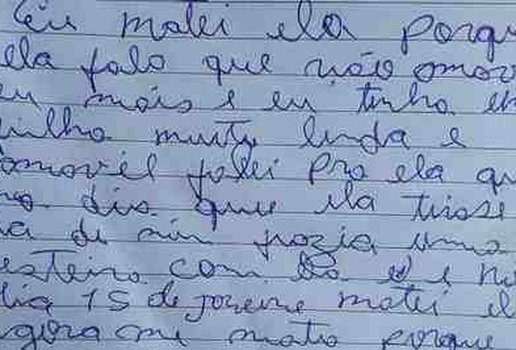 Eu matei ela porqu
ela falo que não amav
eu mais e eu tinha
filha muito linda e
amavel falei pra ela qu
no dia que ela tirase
de min fazia uma
besteira com e no
dia 15 de janeiro matei el
agora me mato porque